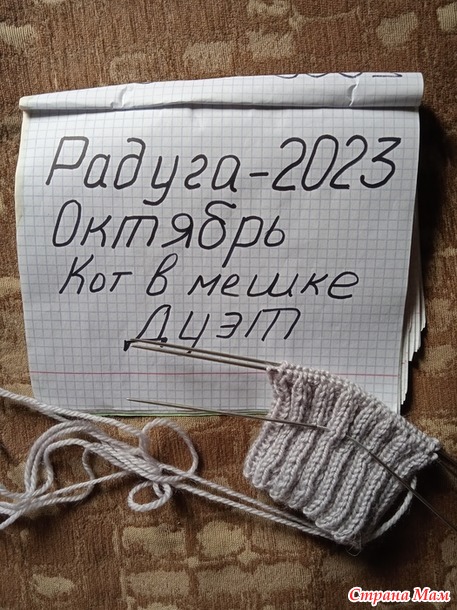 Радуга-2023
Октябрь
Кот в мешке
Дуэт
Страна Мам